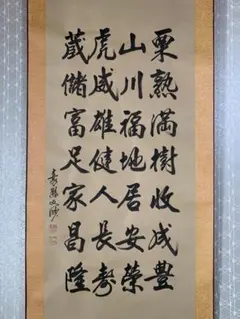 栗熟満樹收成豊
山川福地居安榮
虎威雄健人長壽
蔵儲富足家昌隆